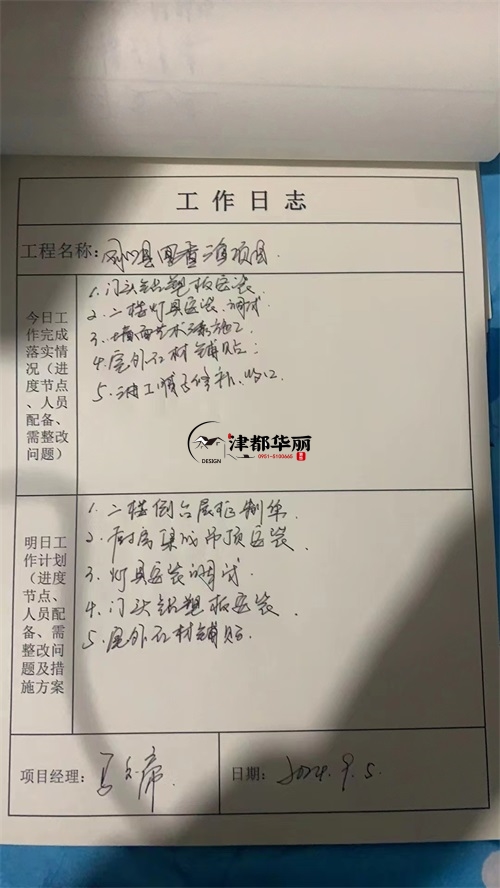 工作日志
工程名称:
今日工作完成落实情况(进度节点、人员配备、需整改问题)
1. 门头铝塑板安装
2. 二楼灯具安装、调试
3. 墙面艺术漆施工
4. 屋外石材铺贴
5. 油工
津都华丽
DESIGN
0951-5100665
明日工作计划(进度节点、人员配备、需整改问题及措施方案
1. 二楼
2. 厨房集成吊顶安装
3. 灯具安装调试
4. 门头铝塑板安装
5. 屋外石材铺贴.
项目经理:
日期: 2024.9.5.